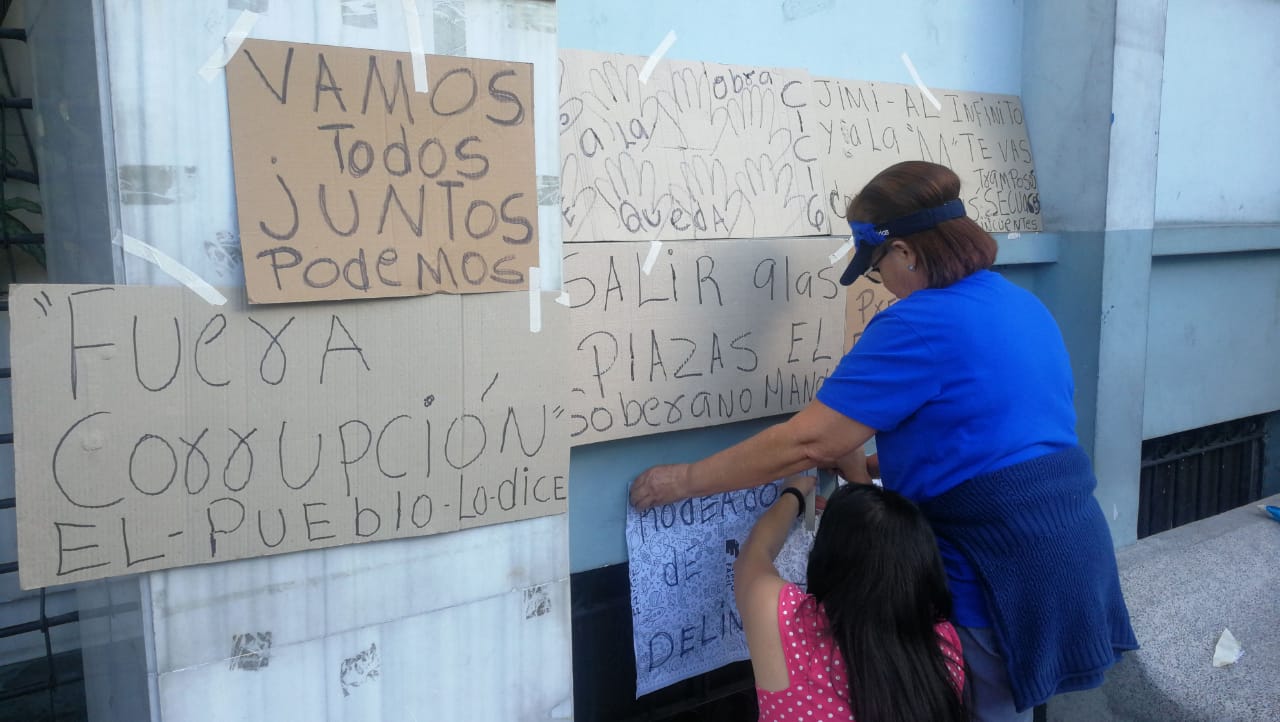 VAMOS
Todos
jUNTOS
PodeMOS
"FUerA
CorrUPCIÓN"
EL-PUEblO-La-dICE
obra
a la
queda
CICIG
JIMI-AL INFINITO
Y a LA "M" TE VAS
TrAMPOSO
SECUAS
SALIr alas
PlAZAS EL
SoberANO MAN
rODEADO
de
DELIN